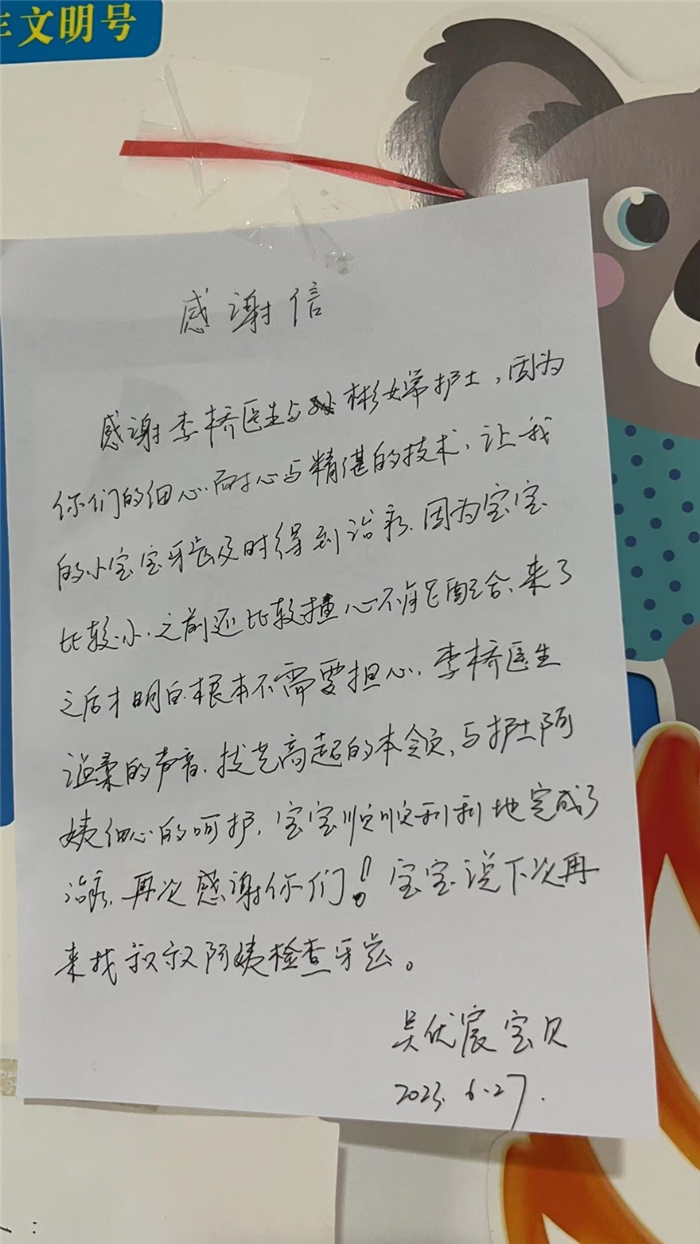 年文明号
感谢信
感谢李桥医生与彬嫦护士，因为
你们的细心.耐心与精湛的技术，让我
的小宝宝牙齿及时得到治疗.因为宝宝
比较小.之前还比较担心不能配合.来了
之后才明白根本不需要担心.李桥医生
温柔的声音.技艺高超的本领，与护士阿
姨细心的呵护，宝宝顺顺利利地完成了
治疗.再次感谢你们！宝宝说下次再
来找叔叔阿姨检查牙齿。
吴优宸宝贝
2023.6.27.